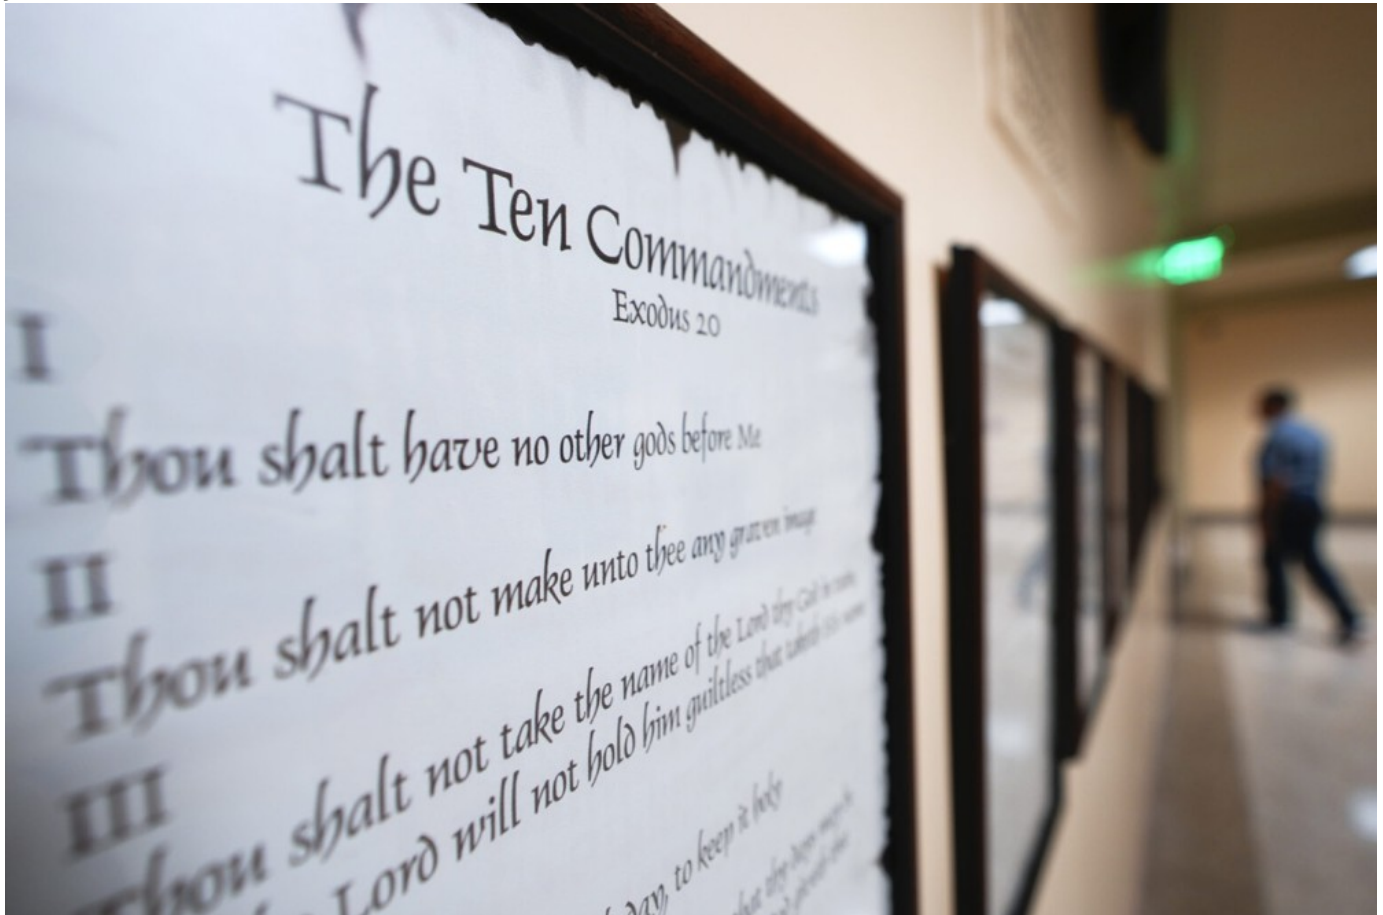 The Ten Commandments
Exodus 20
I
Thou shalt have no other gods before Me
II
Thou shalt not make unto thee any graven image
III
Thou shalt not take the name of the Lord thy God in vain
Lord will not hold him guiltless that taketh His name
day, to keep it holy
that thy days may be